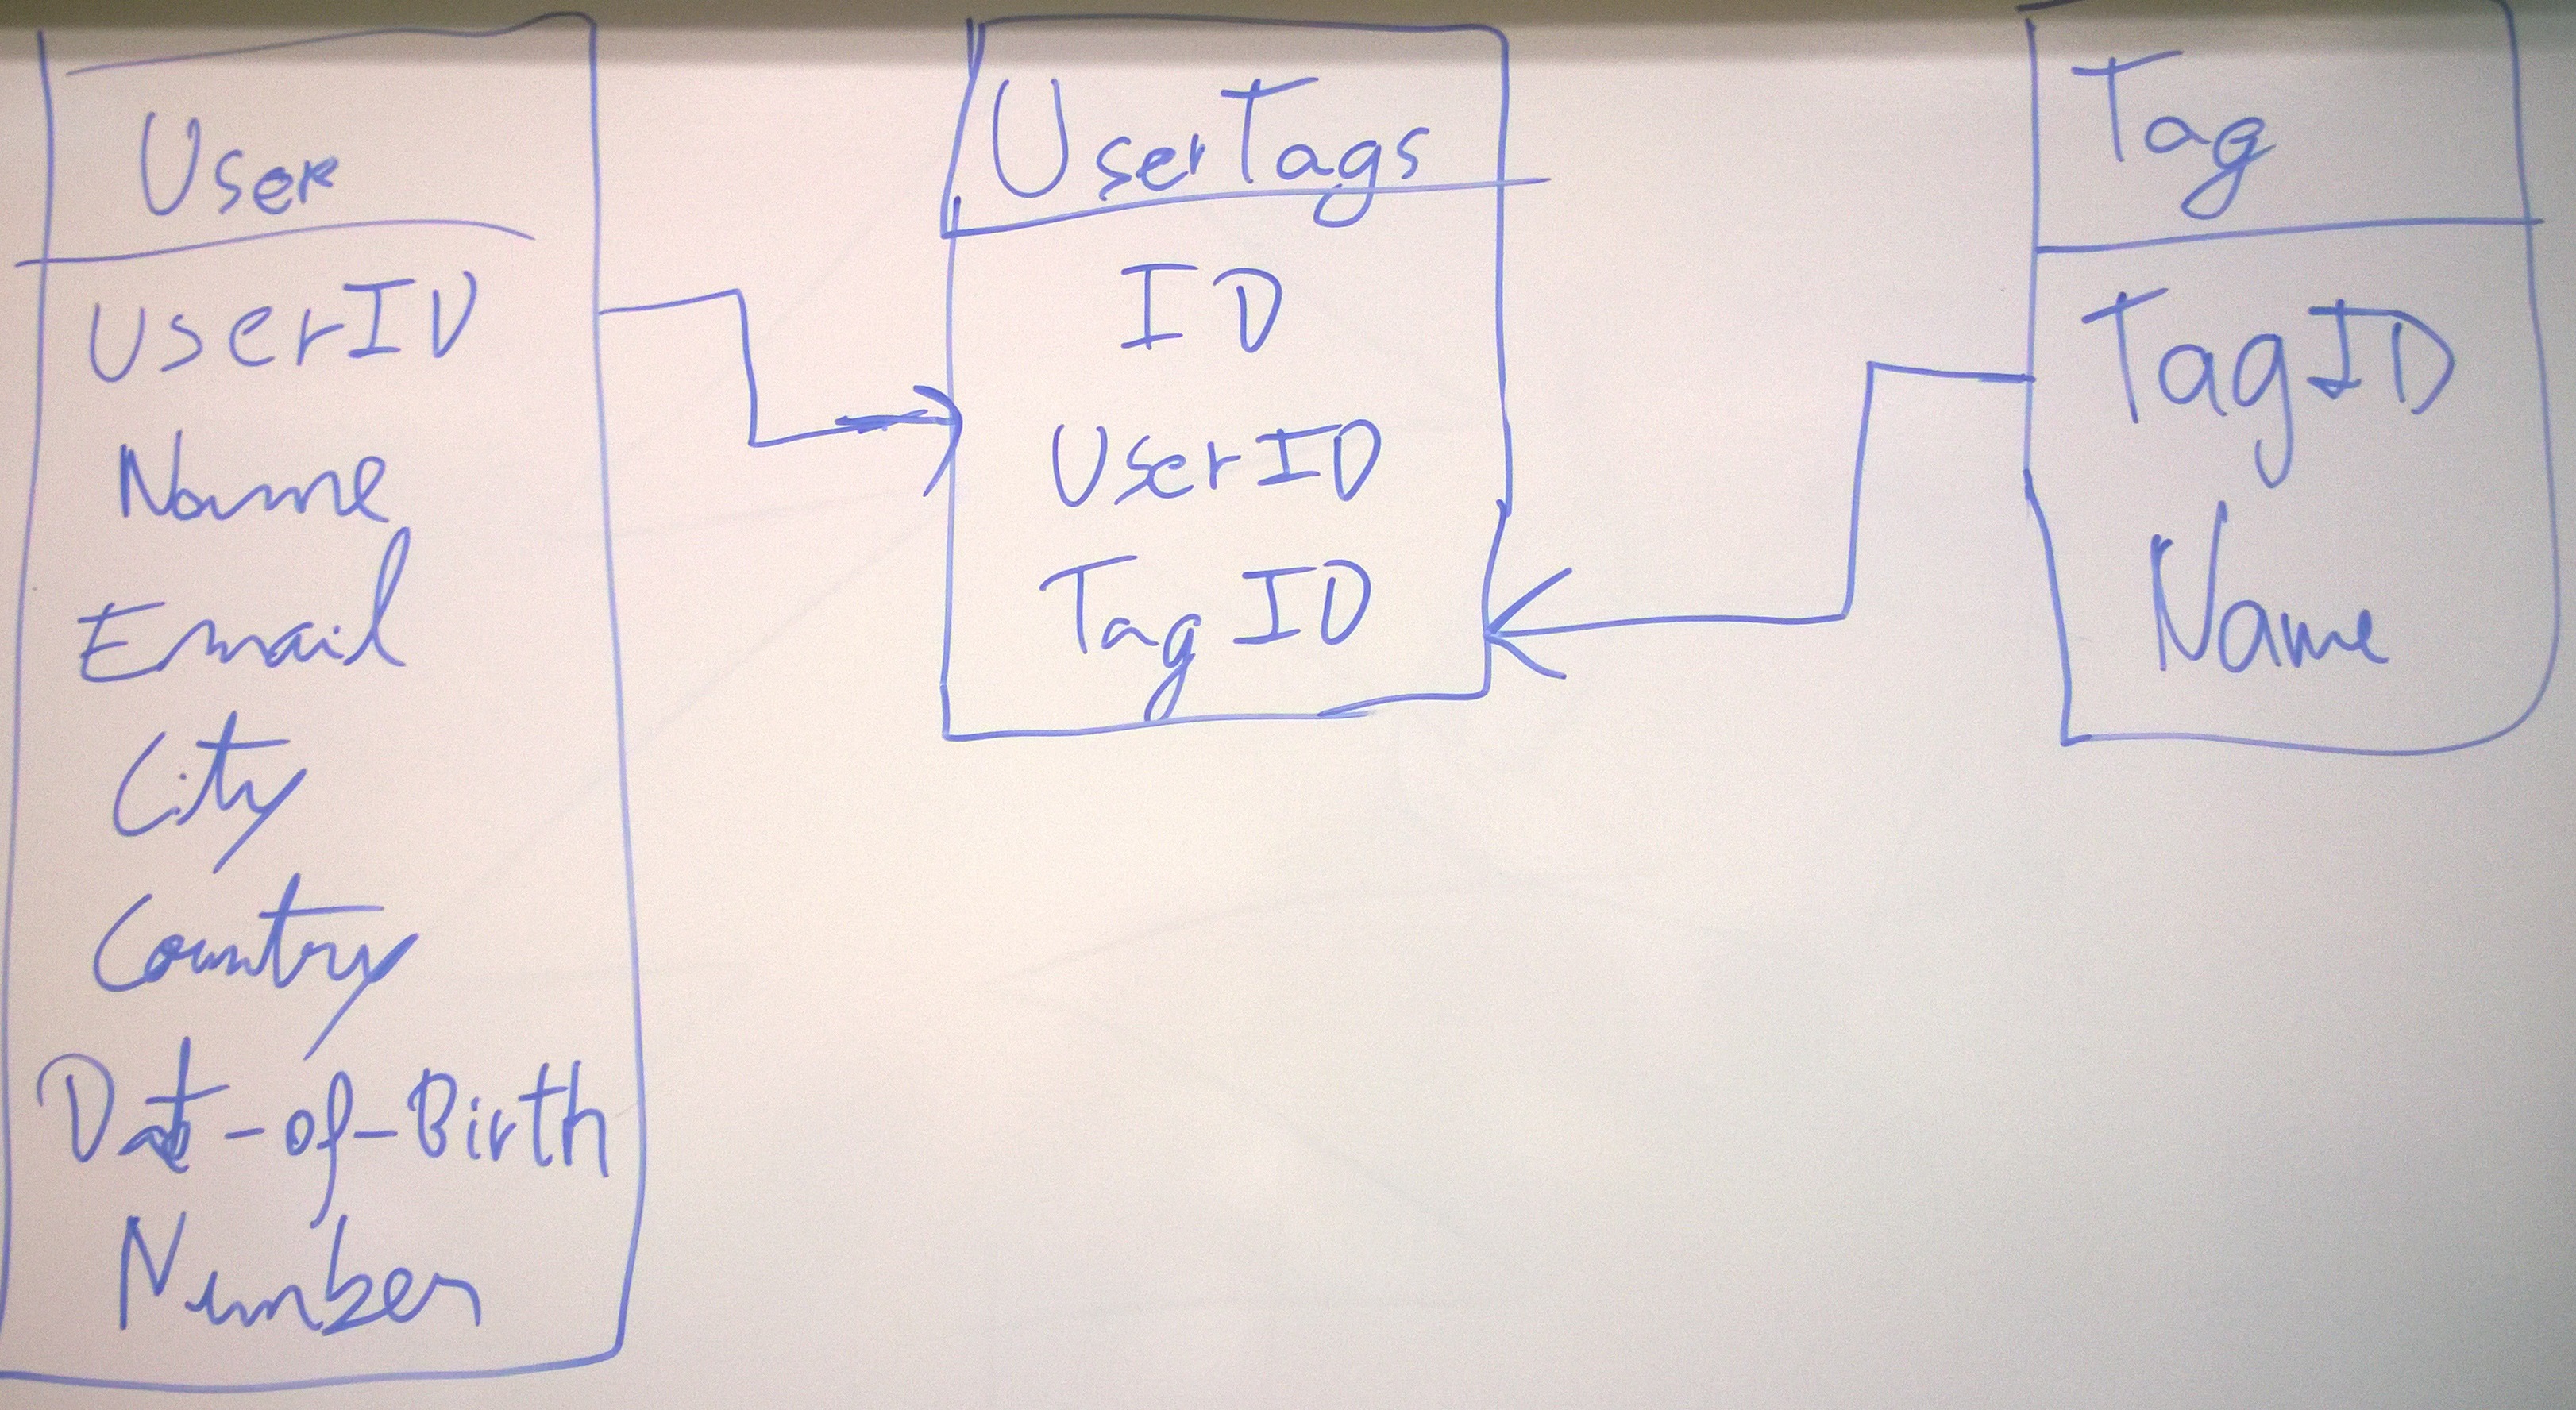 User
UserID
Name
Email
City
Country
Date-of-Birth
Number
UserTags
ID
UserID
TagID
Tag
TagID
Name